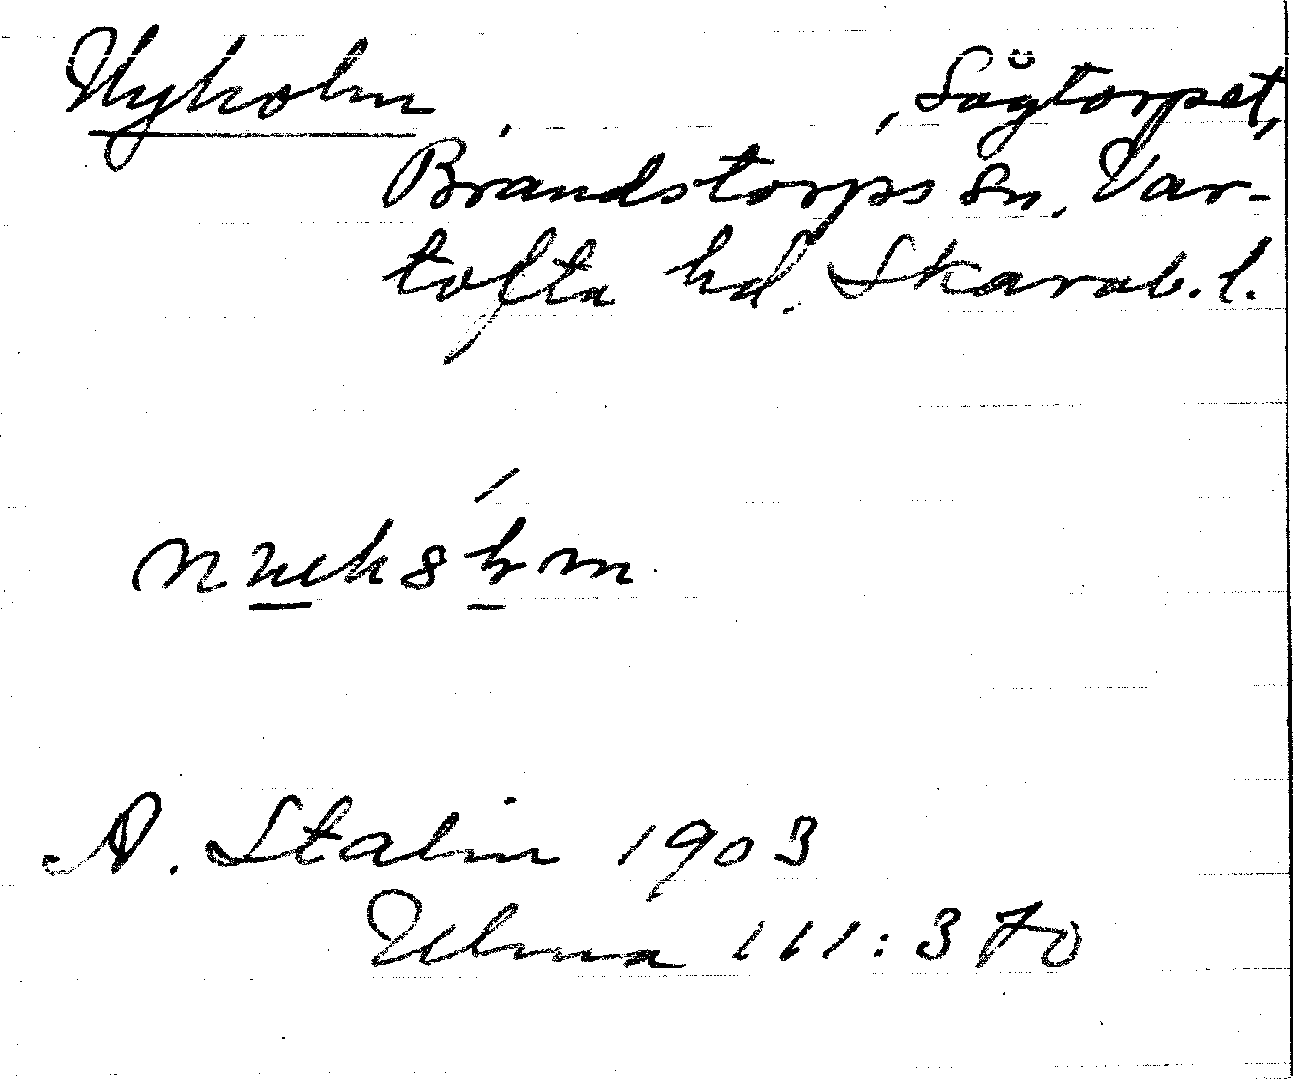 Nyholm, , Sågtorpet,
Brandstorps sn, Var-
tofta hd. Skarab. l.
A. Stalin 1903
Ulma 111:370